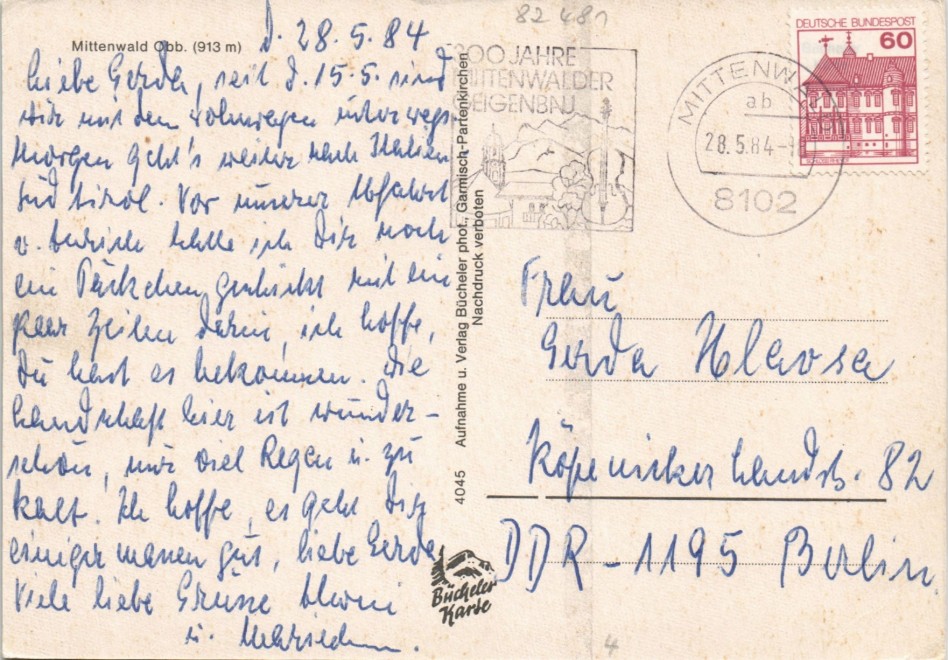 Mittenwald Obb. (913 m)
d. 28.5.84
Liebe Gerda, seit d. 15.5. sind
wir mit dem Wohnwagen unterwegs.
Morgen geht's weiter nach Italien
Südtirol. Vor unserer Abfahrt
v. hatte ich Dir noch
ein Päckchen geschickt mit ein
paar Zeilen darin, ich hoffe,
Du hast es bekommen. Die
Landschaft hier ist wunder-
schön, nur viel Regen u. zu
kalt. Ich hoffe, es geht Dir
einigermassen gut, liebe Gerda
Viele liebe Grüsse
u.
4045 Aufnahme u. Verlag Bücheler phot., Garmisch-Partenkirchen
Nachdruck verboten
Bücheler
Karte
82 481
300 JAHRE
MITTENWALDER
GEIGENBAU
MITTENWALD
ab
28.5.84
8102
DEUTSCHE BUNDESPOST
60
Frau
Gerda Hlavsa
Köpenicker Landstr. 82
DDR-1195 Berlin
4